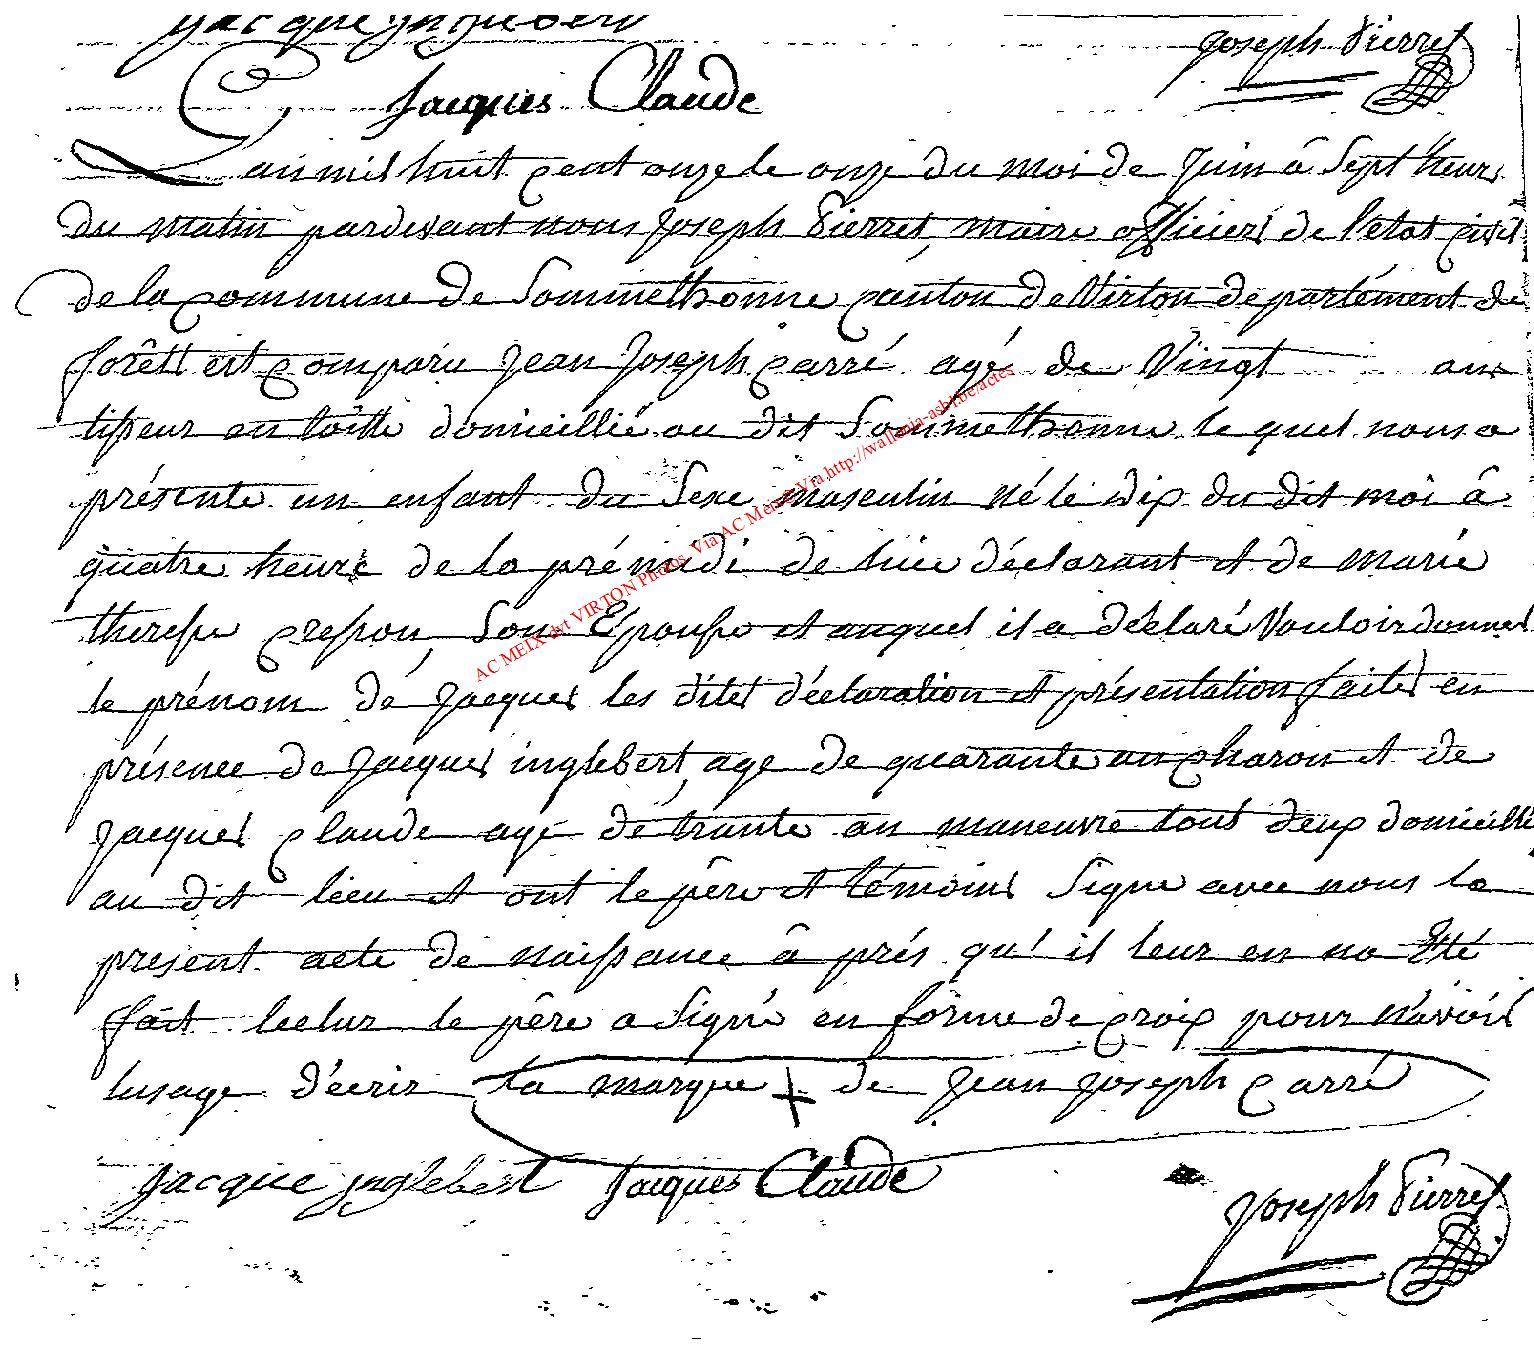 Jacque jnglebert
Joseph Pierret
Jacques Claude
Lan mil huit cent onze le onze du moi de Juin â Sept heurs
du matin pardevant nous Joseph Pierret, maire officiers de letat civil
de la commune de Sommethonne canton de Virton departement de
forêtt est comparu Jean Joseph carré agé de Vingt ans
tisseur en toille domicillié au dit Sommethonne le quel nous a
présente un enfant du Sexe masculin né le dix du dit moi â
quatre heure de la prémidi de luie déclarant et de marie
theresse cresson, Son Epousse et auquel il a déclaré Vouloir donner
le prénom de Jacques les dites déclaration et présentation faites en
présence de Jacques inglebert, age de quarante an charon et de
Jacques claude agé de trante an maneuvre tout deux domicillié
au dit lieu et ont le père et témoins Signe avec nous la
present acte de naissance â prés qu'il leur en na Eté
fait lectur le père a Signé en forme de croix pour n'avoir
lusage d'écrir la marque + de Jean Joseph carré
Jacque jnglebert Jacques Claude
Joseph Pierret
AC MEIX dvt VIRTON Photos Via AC Meix - Via http://wallonia-asbl.be/actes